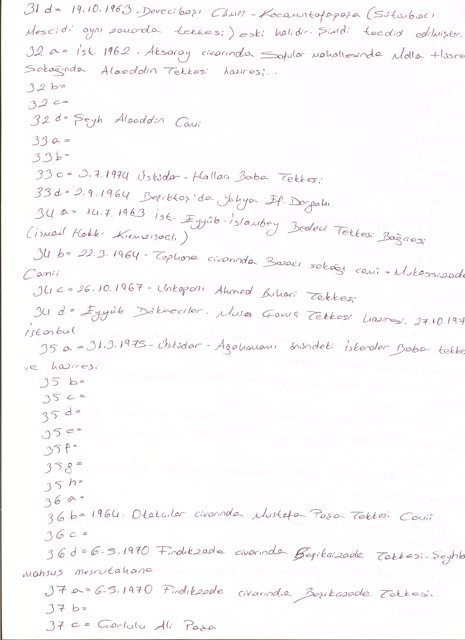 31 d = 19.10.1963. Devecibaşı Camii - Kocamustafapaşa (Sütunbaci
Mescidi aynı zamanda tekkesi) eski halidir. Şimdi tecdid edilmiştir.
32 a = İst. 1962. Aksaray civarında Sofular mahallesinde Molla Hüsrev
Sokağında Alaeddin Tekkesi haziresi...
32 b =
32 c =
32 d = Şeyh Alaaddin Cami
33 a =
33 b =
33 c = 3.7.1974 Üsküdar - Hallac Baba Tekkesi
33 d = 2.9.1964 Beşiktaş'da Yahya Ef. Dergahı
34 a = 14.7.1963 İst. Eyyüb - İslambey Bedevi Tekkesi Bağçesi
(ismail Hakkı)
34 b = 22.3.1964 - Tophane civarında sokağı cami -
Camii
34 c = 26.10.1967 - Unkapanı Ahmed Buhari Tekkesi
34 d = Eyyüb Dökmeciler. Musa Çavuş Tekkesi haziresi. 27.10.197
İstanbul
35 a = 31.3.1975 - Üsküdar - Ağahamamı önündeki İskender Baba tekke
ve haziresi
35 b =
35 c =
35 d =
35 e =
35 f =
35 g =
35 h =
36 a =
36 b = 1964. Otakcılar civarında Mustafa Paşa Tekkesi Camii
36 c =
36 d = 6.5.1970 Fındıkzade civarında Beşikcizade Tekkesi. Şeyhle
mahsus meşrutahane
37 a = 6.5.1970 Fındıkzade civarında Beşikcizade Tekkesi.
37 b =
37 c = Çorlulu Ali Paşa